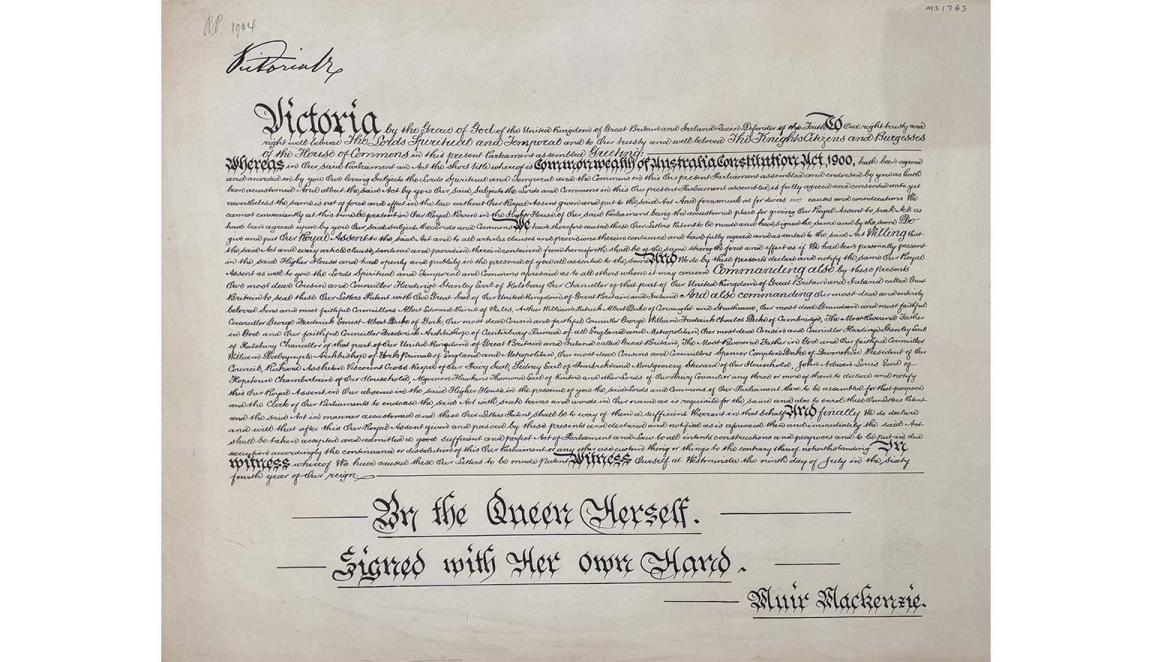 MS 1763
R.P. 1904
Victoria R
Victoria by the Grace of God of the United Kingdom of Great Britain and Ireland Queen Defender of the Faith To Our right trusty and
right well beloved The Lords Spiritual and Temporal and to Our trusty and well beloved The Knights Citizens and Burgesses
of the House of Commons in this present Parliament assembled Greeting:
Whereas in Our said Parliament an Act the short title whereof is Commonwealth of Australia Constitution Act, 1900, hath been agreed
and accorded on by you Our loving Subjects the Lords Spiritual and Temporal and the Commons in this Our present Parliament assembled and endorsed by you as hath
been accustomed And albeit the said Act by you Our said Subjects the Lords and Commons in this Our present Parliament assembled is fully agreed and consented unto yet
nevertheless the same is not of force and effect in the law without Our Royal Assent given and put to the said Act And forasmuch as for divers causes and considerations We
cannot conveniently at this time be present in Our Royal Person in the Higher House of Our said Parliament being the accustomed place for giving Our Royal Assent to such Acts as
have been agreed upon by you Our said subjects the Lords and Commons We have therefore caused these Our Letters Patent to be made and have signed the same and by the same Do
give and put Our Royal Assent to the said Act and to all articles clauses and provisions therein contained and have fully agreed and assented to the said Act Willing that
the said Act and every article clause sentence and provision therein contained from henceforth shall be of the same strength force and effect as if We had been personally present
in the said Higher House and had openly and publicly in the presence of you all assented to the same And We do by these presents declare and notify the same Our Royal
Assent as well to you the Lords Spiritual and Temporal and Commons aforesaid as to all others whom it may concern Commanding also by these presents
Our most dear Cousin and Councillor Hardinge Stanley Earl of Halsbury Our Chancellor of that part of Our United Kingdom of Great Britain and Ireland called Great
Britain to seal these Our Letters Patent with Our Great Seal of Our United Kingdom of Great Britain and Ireland And also commanding Our most dear and entirely
beloved Sons and most faithful Councillors Albert Edward Prince of Wales, Arthur William Patrick Albert Duke of Connaught and Strathearn, Our most dear Grandson and most faithful
Councillor George Frederick Ernest Albert Duke of York, Our most dear Cousin and faithful Councillor George William Frederick Charles Duke of Cambridge, The Most Reverend Father
in God and Our faithful Councillor Frederick Archbishop of Canterbury Primate of all England and Metropolitan, Our most dear Cousin and Councillor Hardinge Stanley Earl
of Halsbury Chancellor of that part of Our United Kingdom of Great Britain and Ireland called Great Britain, The Most Reverend Father in God and Our faithful Councillor
William Dalrymple Archbishop of York Primate of England and Metropolitan, Our most dear Cousins and Councillors Spencer Compton Duke of Devonshire President of Our
Council, Richard Assheton Viscount Cross Keeper of Our Privy Seal, Sidney Earl of Pembroke and Montgomery Steward of Our Household, John Adrian Louis Earl of
Hopetoun Chamberlain of Our Household, Algernon Hawkins Thomond Earl of Kintore and other Lords of Our Privy Council or any three or more of them to declare and notify
this Our Royal Assent in Our absence in the said Higher House in the presence of you the said Lords and Commons of Our Parliament there to be assembled for that purpose
and the Clerk of Our Parliaments to endorse the said Act with such terms and words in Our name as is requisite for the same and also to enrol these Our Letters Patent
and the said Act in manner accustomed and these Our Letters Patent shall be to every of them a sufficient Warrant in that behalf And finally We do declare
and will that after this Our Royal Assent given and passed by these presents and declared and notified as is aforesaid then and immediately the said Act
shall be taken accepted and admitted a good sufficient and perfect Act of Parliament and Law to all intents constructions and purposes and to be put in due
execution accordingly the continuance or dissolution of this Our Parliament or any other use custom thing or things to the contrary thereof notwithstanding In
witness whereof We have caused these Our Letters to be made Patent Witness Ourself at Westminster the ninth day of July in the sixty
fourth year of Our reign
By the Queen Herself.
Signed with Her own Hand.
Muir Mackenzie.